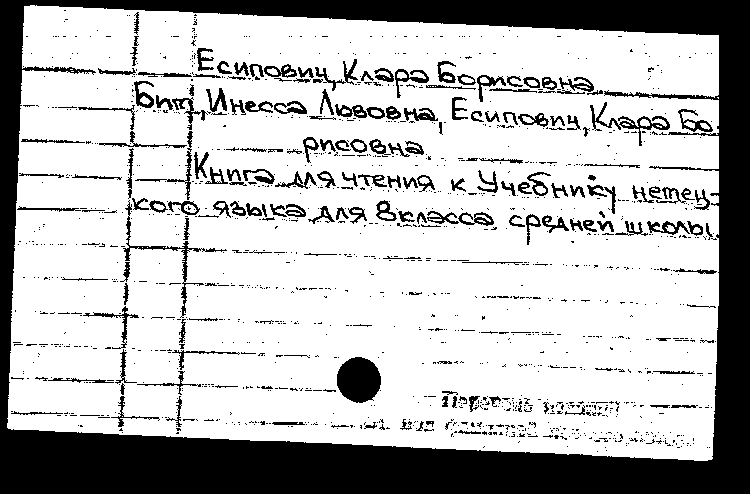 Есипович, Клара Борисовна
Бим, Инесса Львовна, Есипович, Клара Бо-
рисовна.
Книга для чтения к Учебнику немец-
кого языка для 8 класса средней школы.
под фамилией